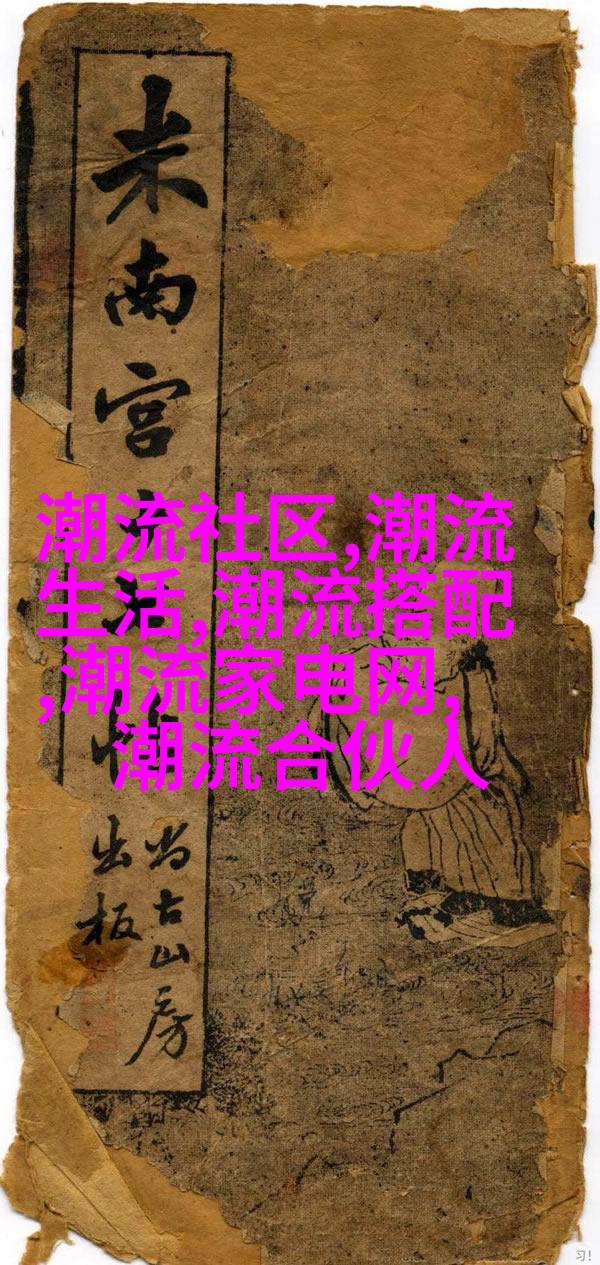 米南宫
潮流社区,潮流
生活,潮流搭配
,潮流家电网,
潮流合伙人
尚古山房
出板
习!